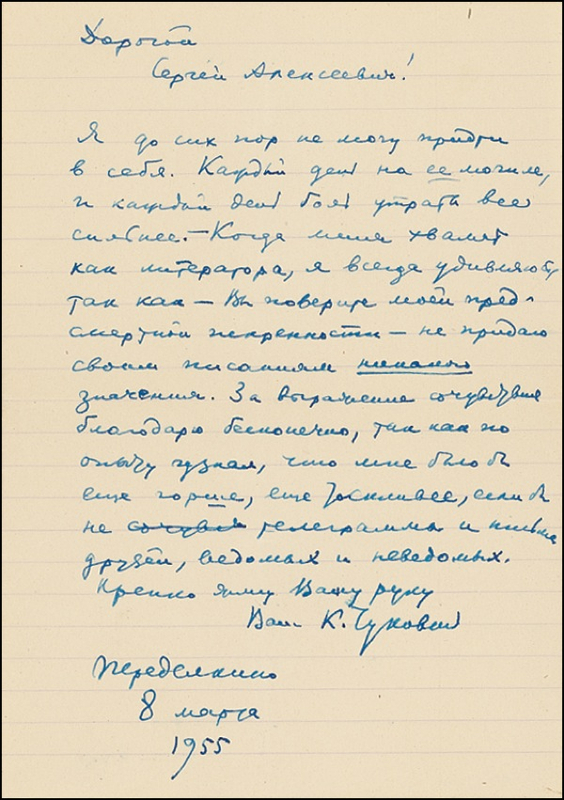 Дорогой
Сергей Алексеевич!
Я до сих пор не могу придти
в себя. Каждый день на ее могиле,
и каждый день боль утраты все
сильнее. — Когда меня хвалят
как литератора, я всегда удивляюсь,
так как — Вы поверите моей пред-
смертной искренности — не придаю
своим писаниям никакого
значения. За выражение сочувствия
благодарю бесконечно, так как по
опыту узнал, что мне было бы
еще горше, еще тоскливее, если бы
не сочувст телеграммы и письма
друзей, ведомых и неведомых.
Крепко жму Вашу руку
Ваш К. Чуковский
Переделкино
8 марта
1955